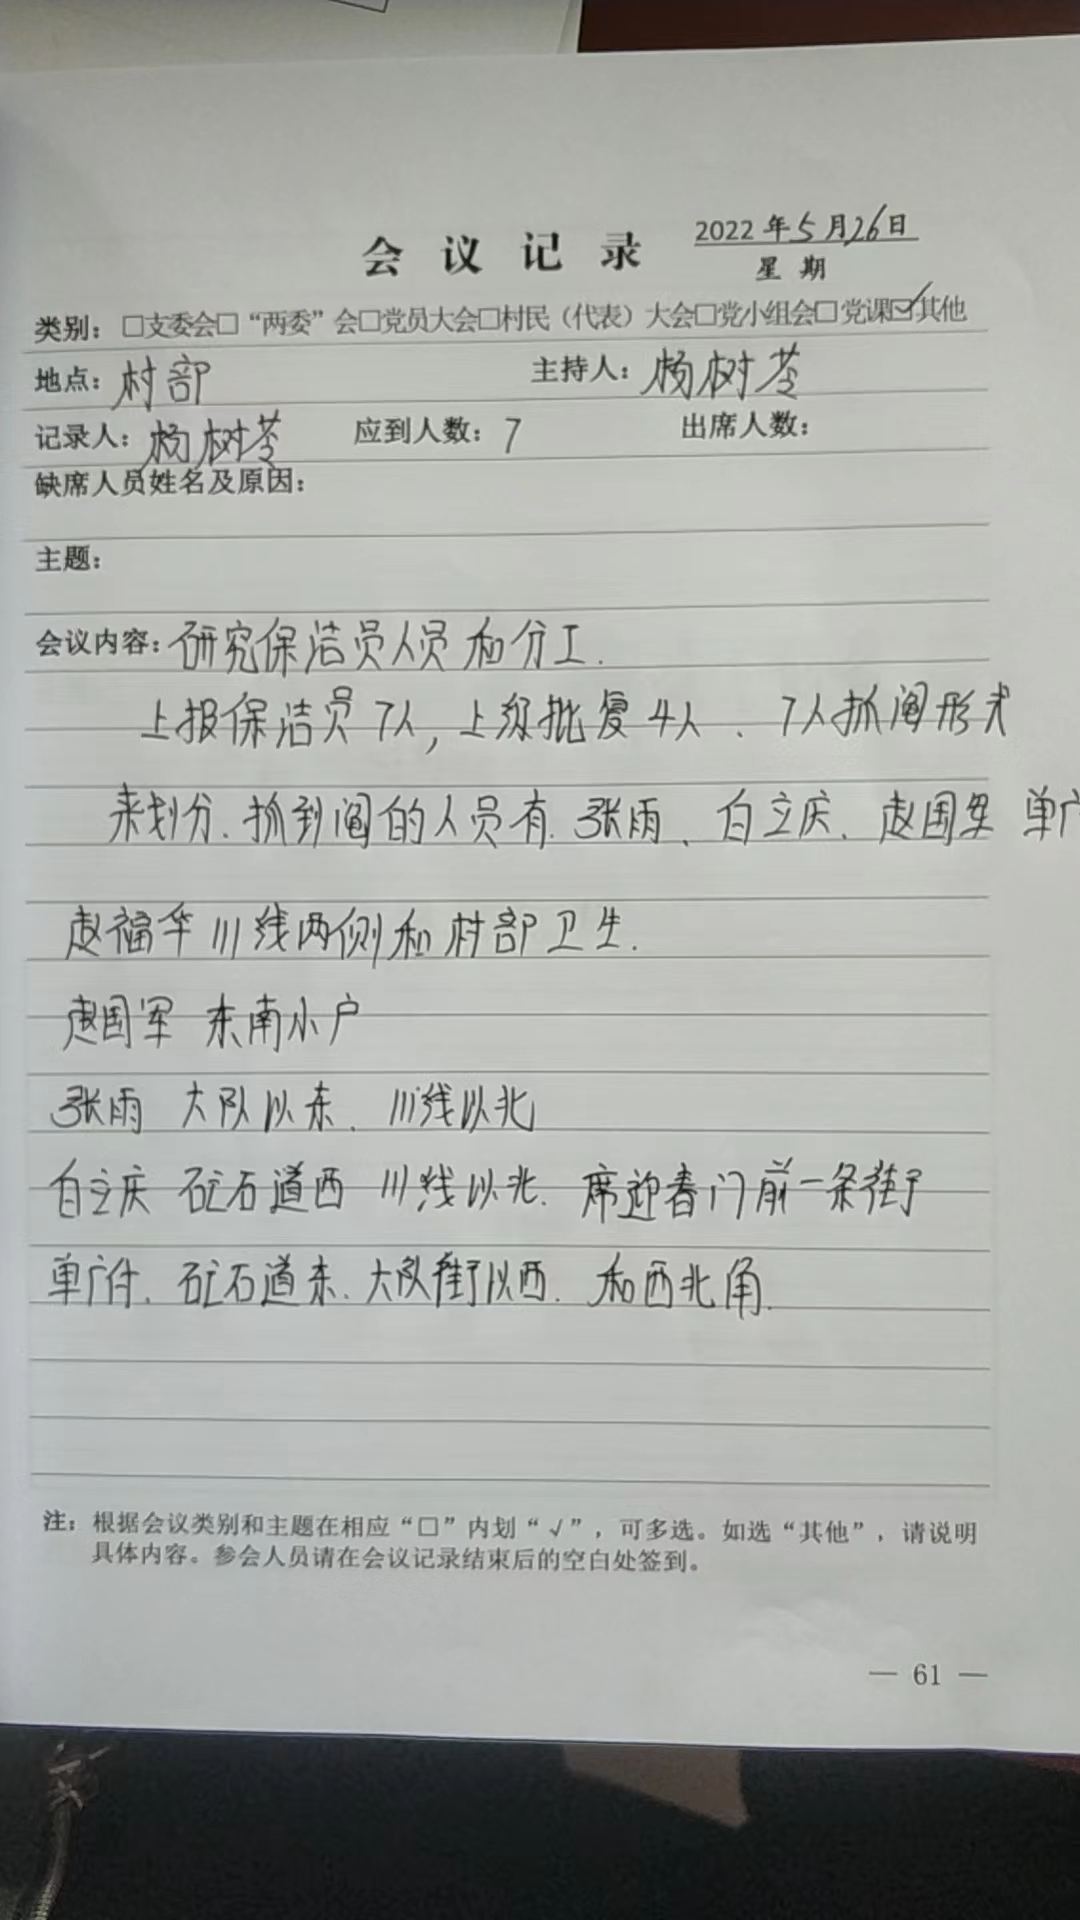 会议记录
2022年5月26日
星期
类别：□支委会□“两委”会□党员大会□村民（代表）大会□党小组会□党课☑其他
地点：村部 主持人：杨树苓
记录人：杨树苓 应到人数：7 出席人数：
缺席人员姓名及原因：
主题：
会议内容：研究保洁员人员和分工.
上报保洁员7人，上级批复4人、7人抓阄形式
来划分.抓到阄的人员有.张雨、白立庆、赵国军 单广
赵福华 川线两侧和村部卫生.
赵国军 东南小户
张雨 大队以东、川线以北
白立庆 矿石道西 川线以北.席迎春门前一条街
单广付、矿石道东、大队街以西、和西北角.
注：根据会议类别和主题在相应“□”内划“√”，可多选。如选“其他”，请说明
具体内容。参会人员请在会议记录结束后的空白处签到。
— 61 —